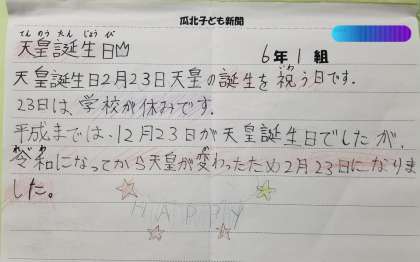 瓜北子ども新聞
てんのうたんじょうび
天皇誕生日
6年1組
天皇誕生日2月23日天皇の誕生を祝う日です。
いわ
23日は、学校が休みです.
平成までは、12月23日が天皇誕生日でしたが、
令和になってから天皇が変わったため2月23日になりま
れいわ
か
した。
HAPPY